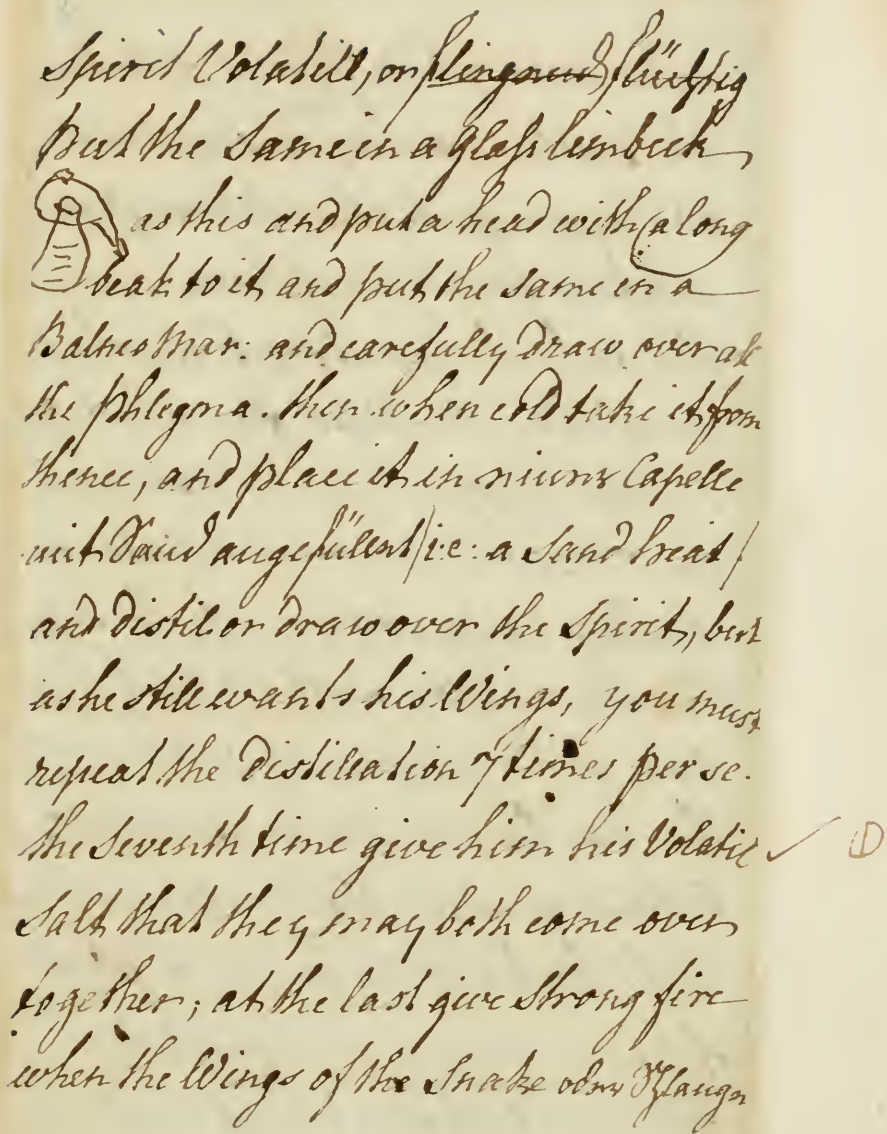 Spirit Volatill, or flüchtig
Put the Same in a Glass limbeck
as this and put a head with (a long
beak to it, and put the same in a
Balneo Mar: and carefully Draw over all
the phlegma. then when cold take it from
thence, and place it in einer Capelle
mit Sand angefüllet / i:e: a Sand heat /
and Distil or draw over the Spirit, but
as he still wants his Wings, you must
repeat the Distillation 7 times per se.
the Seventh time give him his Volatil ✓ ①
Salt that they may both come over
together; at the last give Strong fire
when the Wings of the Snake oder Schlangen